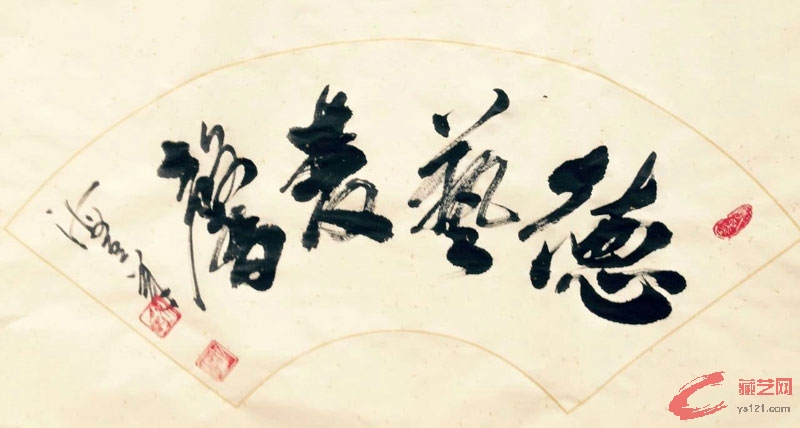 德藝雙馨
藏艺网
ys121.com